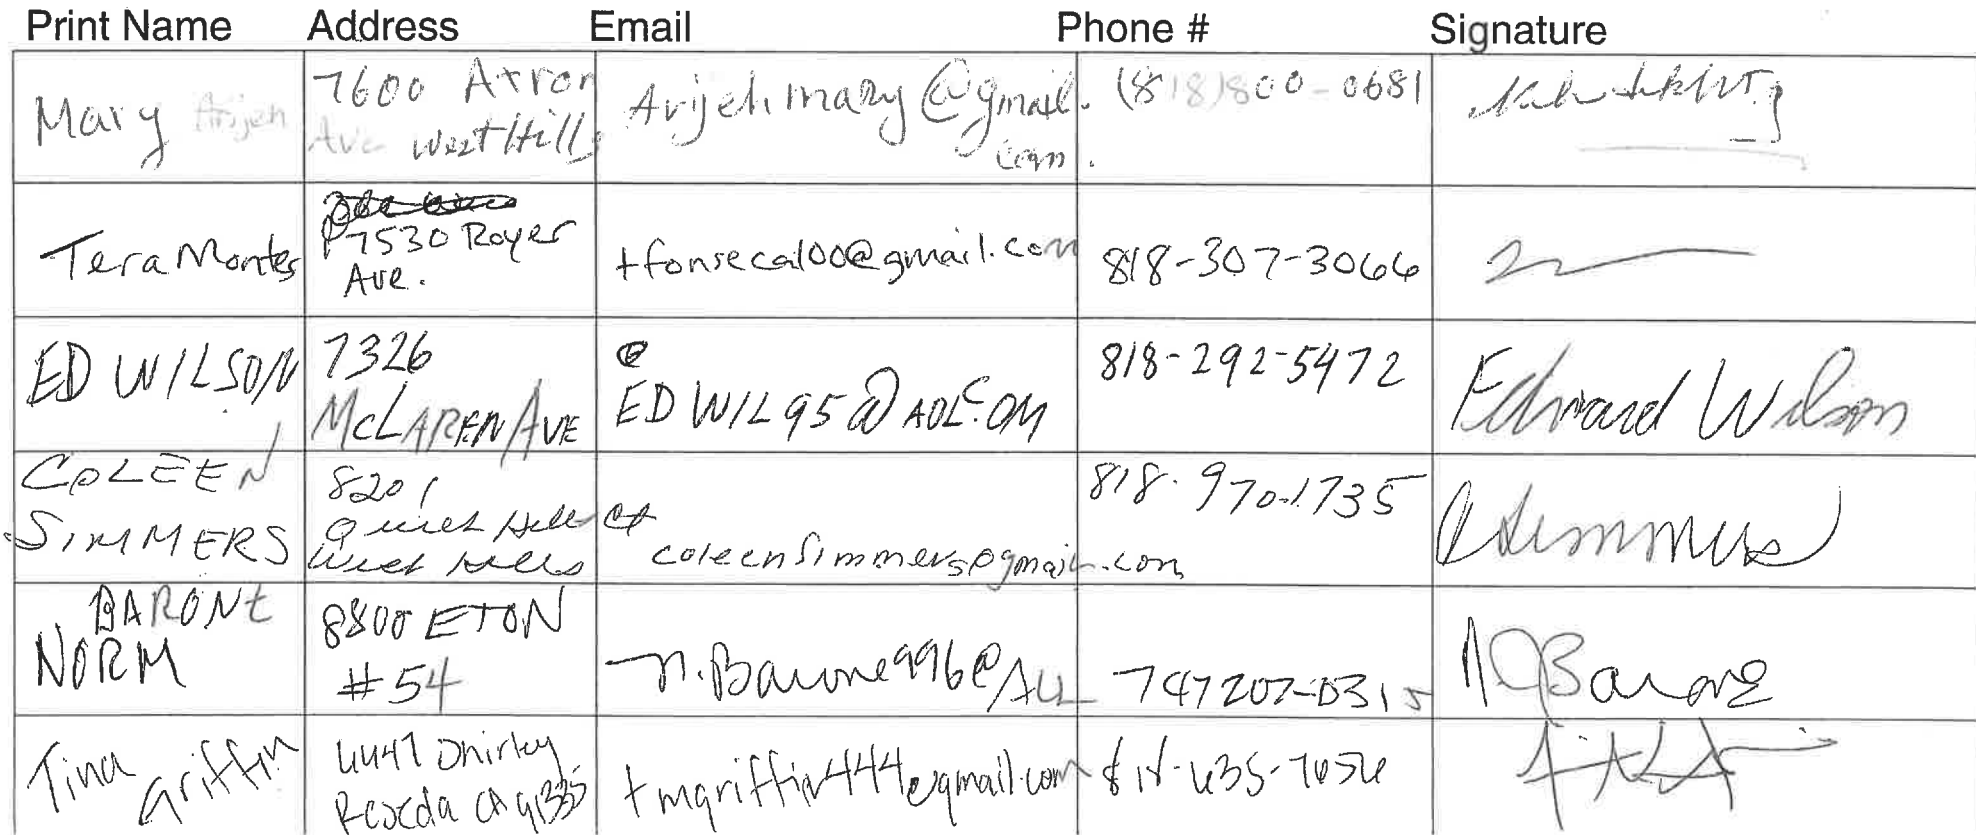 Print Name Address Email Phone # Signature
Mary Arijeh
7600 Atron
Ave West Hills
Arijehmary@gmail.
com.
(818)800-0681
Tera Montes
7530 Royer
Ave.
tfonseca100@gmail.com
818-307-3066
ED WILSON
7326
McLAREN AVE
EDWIL95@AOL.COM
818-292-5472
Edward Wilson
COLEEN
SIMMERS
8201
Quiet Hills Ct
West Hills
coleensimmers@gmail.com
818-970-1735
CSimmers
BARONE
NORM
8800 ETON
#54
n.Barone996@
747207-0315
NBarone
Tina
Griffin
Shirley
Reseda CA 91335
tmgriffin444@gmail.com